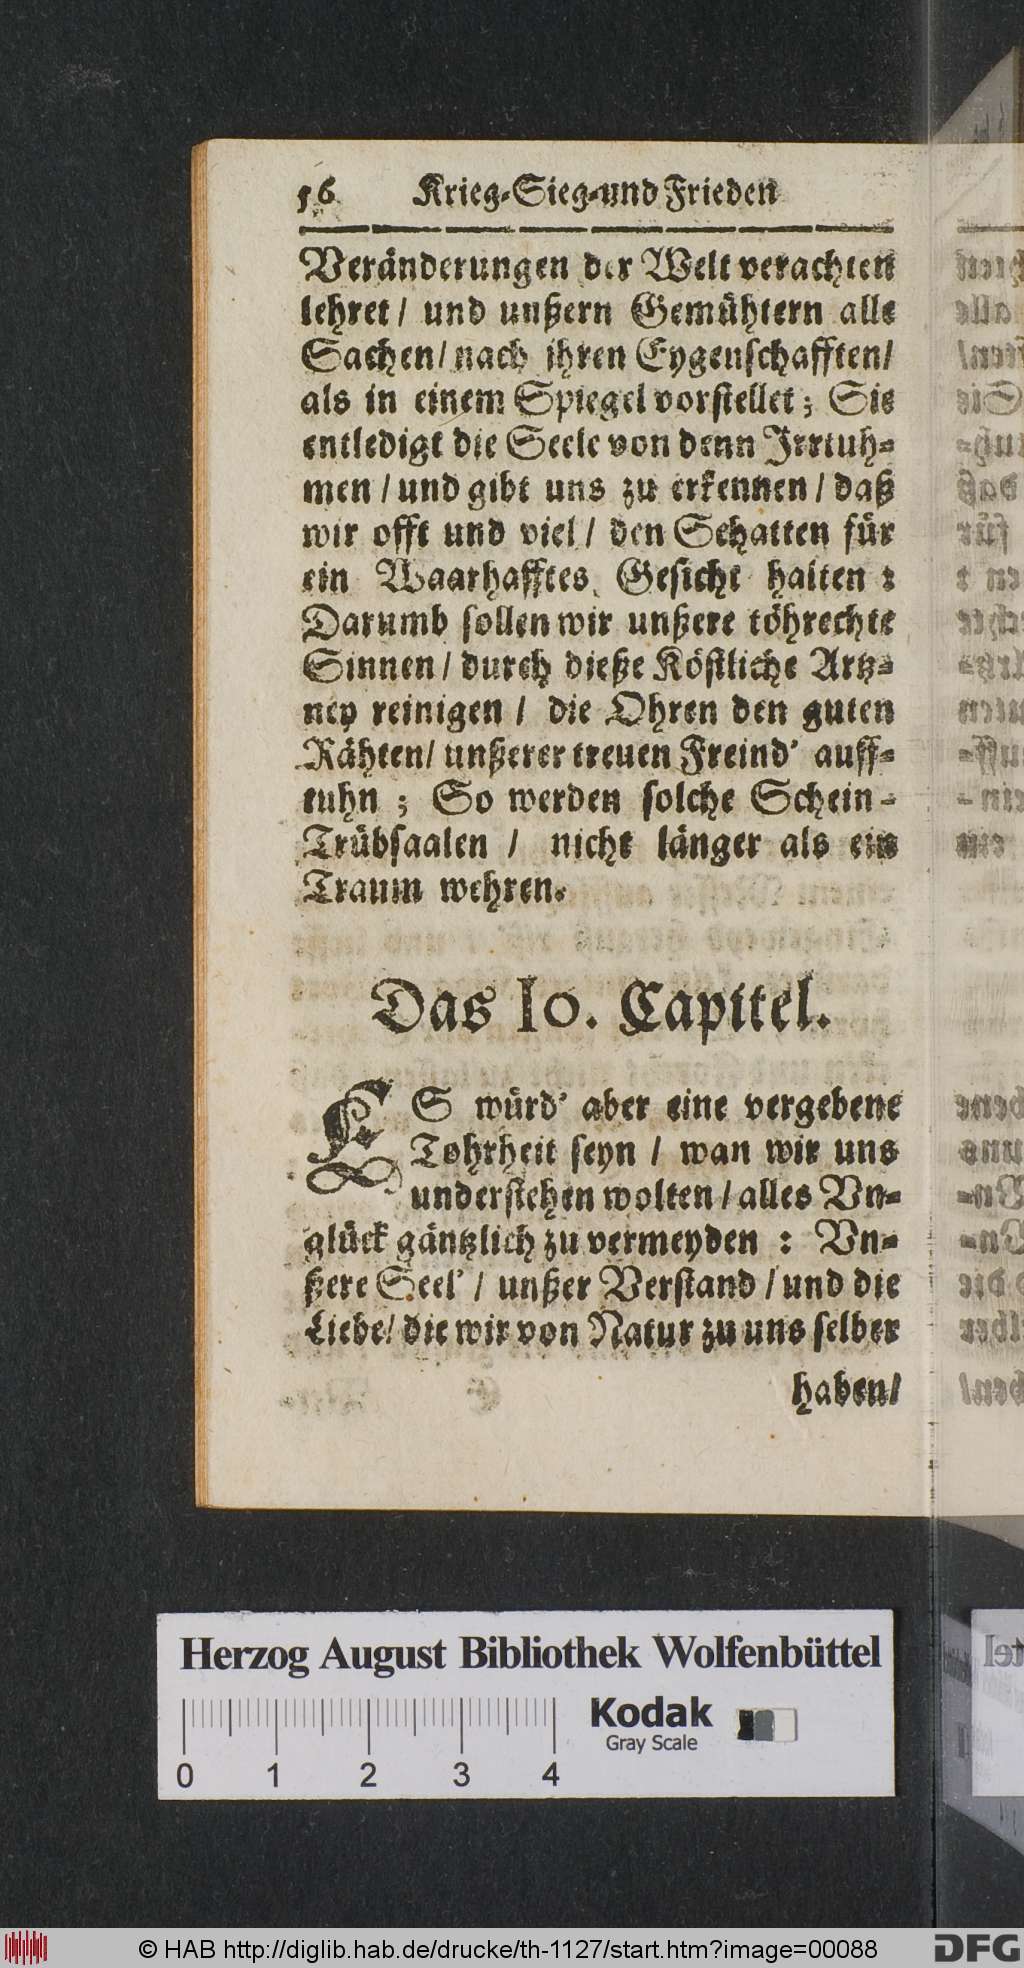 56 Krieg-Sieg-und Frieden
Veränderungen der Welt verachten
lehret / und unßern Gemühtern alle
Sachen / nach ihren Eygenschafften /
als in einem Spiegel vorstellet ; Sie
entledigt die Seele von denn Irrtuh-
men / und gibt uns zu erkennen / daß
wir offt und viel / den Schatten für
ein Waarhafftes Gesicht halten :
Darumb sollen wir unßere töhrechte
Sinnen / durch dieße Köstliche Artz-
ney reinigen / die Ohren den guten
Rähten / unßerer treuen Freind' auff-
tuhn ; So werden solche Schein-
Trübsaalen / nicht länger als ein
Traum wehren.
Das 10. Capitel.
ES würd' aber eine vergebene
Tohrheit seyn / wan wir uns
understehen wolten / alles Vn-
glück gäntzlich zu vermeyden : Vn-
ßere Seel' / unßer Verstand / und die
Liebe / die wir von Natur zu uns selber
haben /
Herzog August Bibliothek Wolfenbüttel
Kodak
Gray Scale
0 1 2 3 4
© HAB http://diglib.hab.de/drucke/th-1127/start.htm?image=00088
DFG